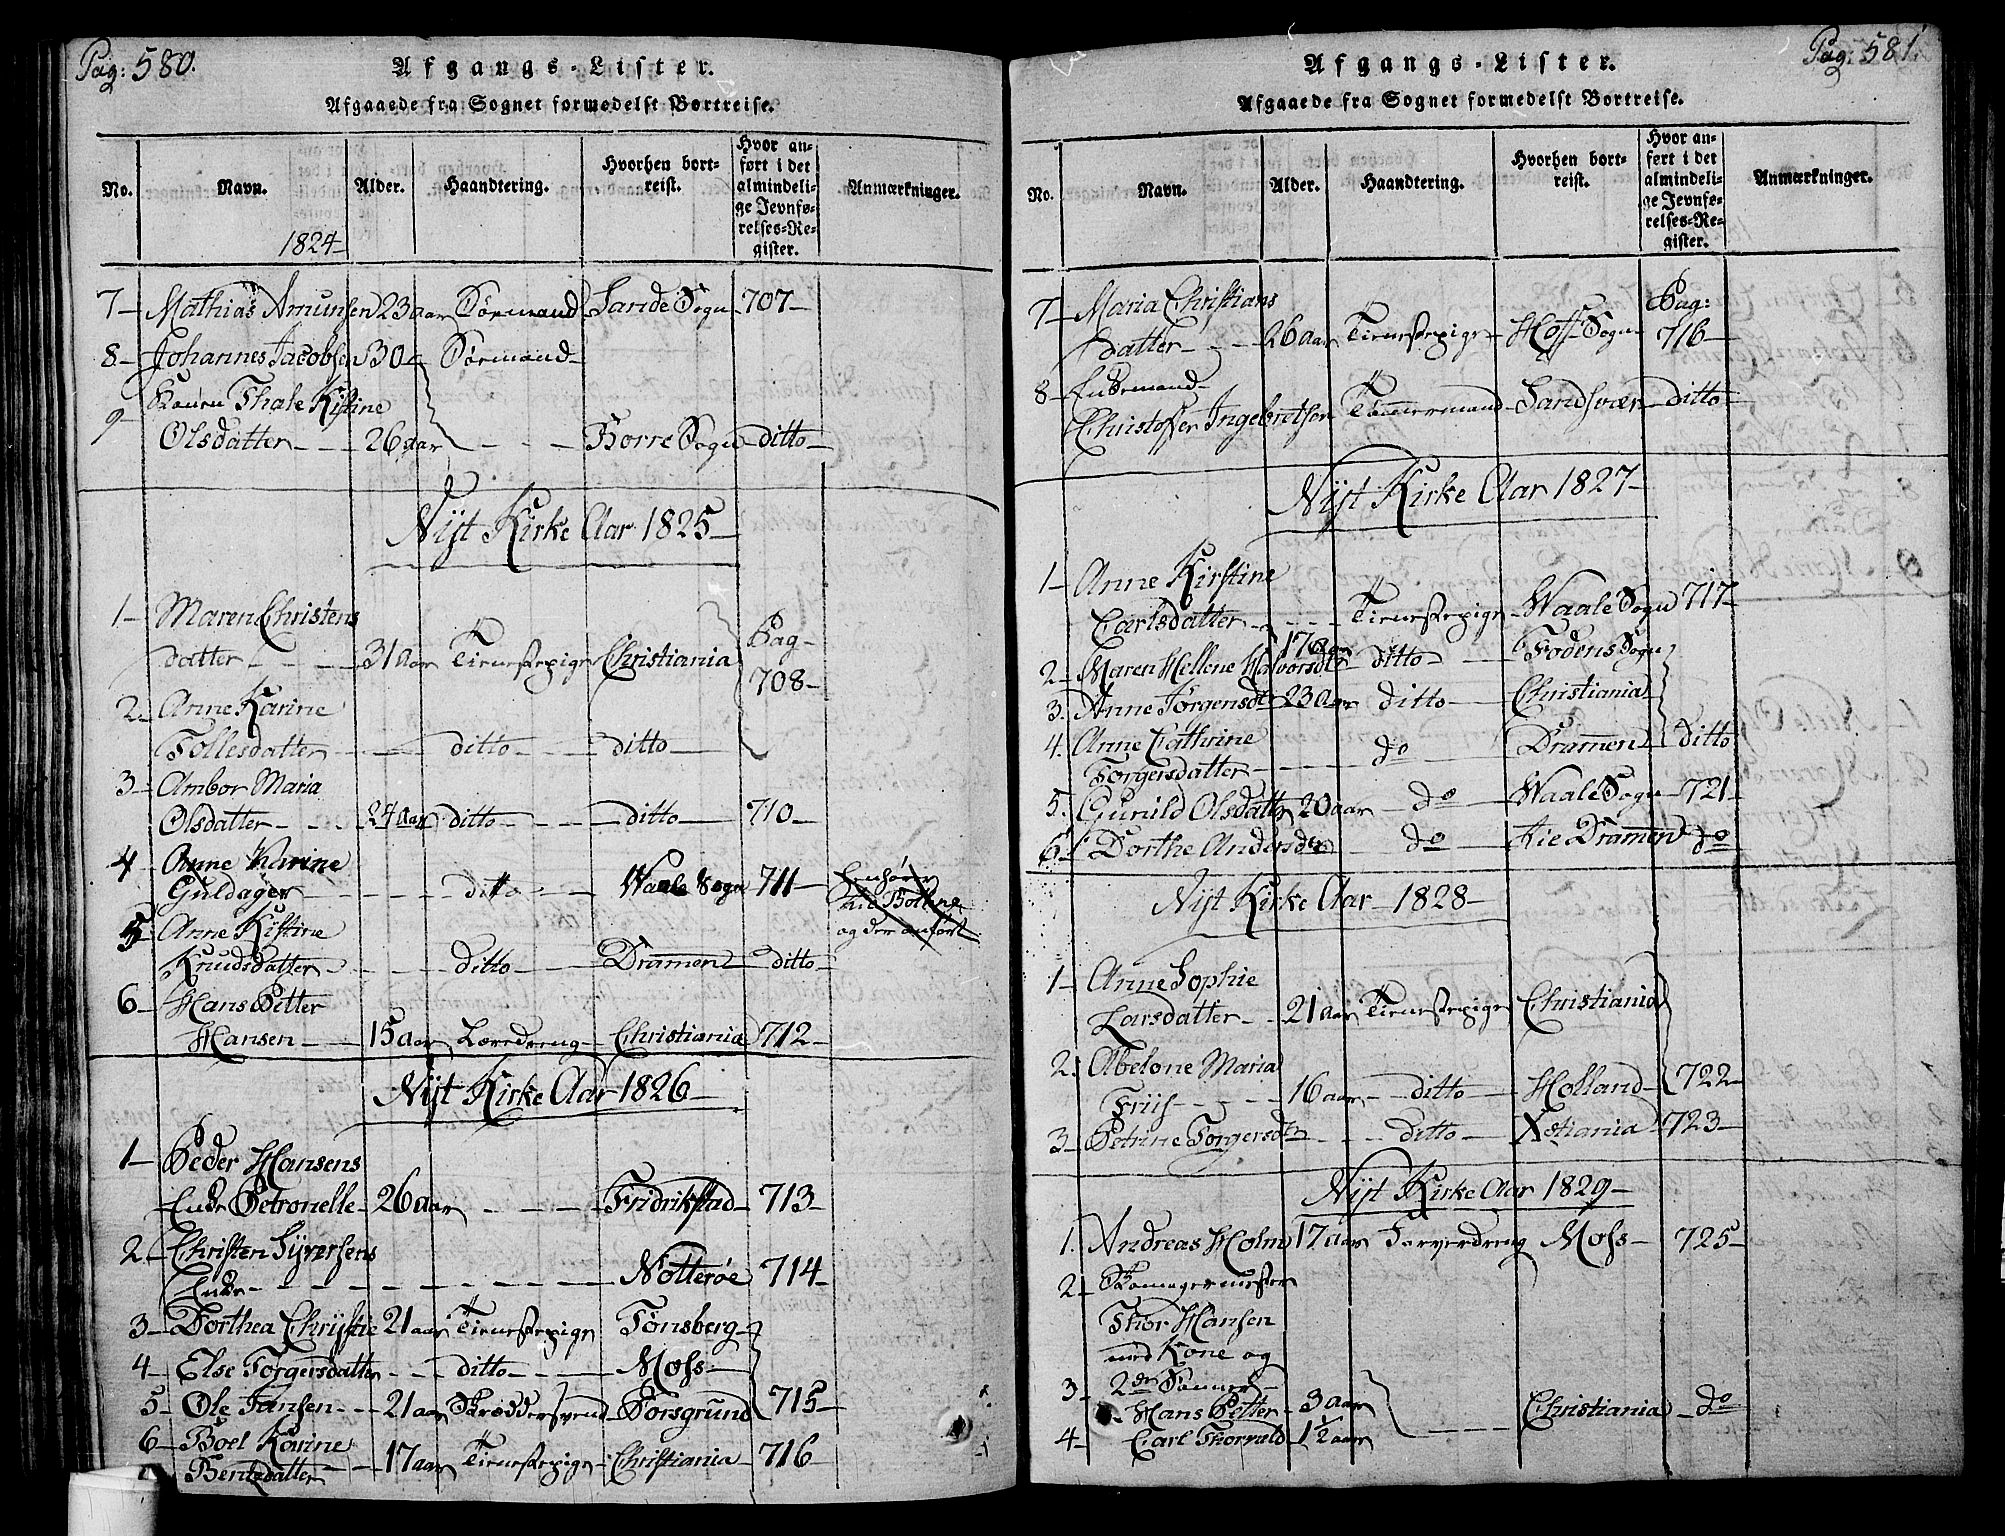 Pag: 580.
Afgangs-Lister.
Afgaaede fra Sognet formedelst Bortreise.
No. Navn. Alder. Haandtering. Hvorhen bortreist. Hvor anført i det almindelige Jevnførelses-Register. Anmærkninger.
1824
7 Mathias Amunsen 23 aar Sørmand Sande Sogn 707
8 Johannes Jacobsen 30 Sørmand
9 Konen Thale Kistine
Olsdatter 26 aar Borre Sogn ditto
Nÿt Kirke Aar 1825
1 Maren Christens
datter 31 aar Tienestepige Christiania Pag 708
2 Anne Karine
Follesdatter ditto ditto
3 Ambor Maria
Olsdatter 24 aar ditto ditto 710
4 Anne Karine
Guldager ditto Waale Sogn 711 henhører til Bottne og der anført
5 Anne Kistine
Knudsdatter ditto Dramen ditto
6 Hans Petter
Hansen 15 aar Læredreng Christiania 712
Nÿt Kirke Aar 1826
1 Peder Hansens
Enke Petronelle 26 aar Fridrikstad 713
2 Christen Syversens
Enke Notterøe 714
3 Dorthea Christie 21 aar Tienestepige Tønsberg
4 Else Torgersdatter ditto Moss
5 Ole Jansen 21 aar Skræddersvend Porsgrund 715
6 Boel Karine
Bentsdatter 17 aar Tienestepige Christiania 716
Pag: 581.
Afgangs-Lister.
Afgaaede fra Sognet formedelst Bortreise.
No. Navn. Alder. Haandtering. Hvorhen bortreist. Hvor anført i det almindelige Jevnførelses-Register. Anmærkninger.
7 Maria Christians
datter 26 aar Tienestepige Hoff Sogn Pag: 716
8 Enkemand
Christoffer Ingebretsen Tømmermand Sandsvær ditto
Nÿt Kirke Aar 1827
1 Anne Kirstine
Carlsdatter Tienestepige Waale Sogn 717
2 Maren Hellene Halvorsdtr 17 aar ditto Fodens Sogn
3. Anne Jørgensdt 23 aar ditto Christiania
4. Anne Cathrine
Torgersdatter do Dramen ditto
5. Gunild Olsdattr 20 aar do Waale Sogn 721
6 Dorthe Andersdtr do Dramen do
Nÿt Kirke Aar 1828
1 Anne Sophie
Larsdatter 21 aar Tienestepige Christiania
2. Abelone Maria
Friis 16 aar ditto Holland 722
3 Petrine Torgersdtr ditto Xstiania 723
Nÿt Kirke Aar 1829
1. Andreas Holm 17 aar Farverdreng Moss 725
2 Skomagermester
Thor Hansen
med Kone og
3 2de Sønner
Hans Petter 3 aar Christiania do
4 Carl Thorvald 1½ aar